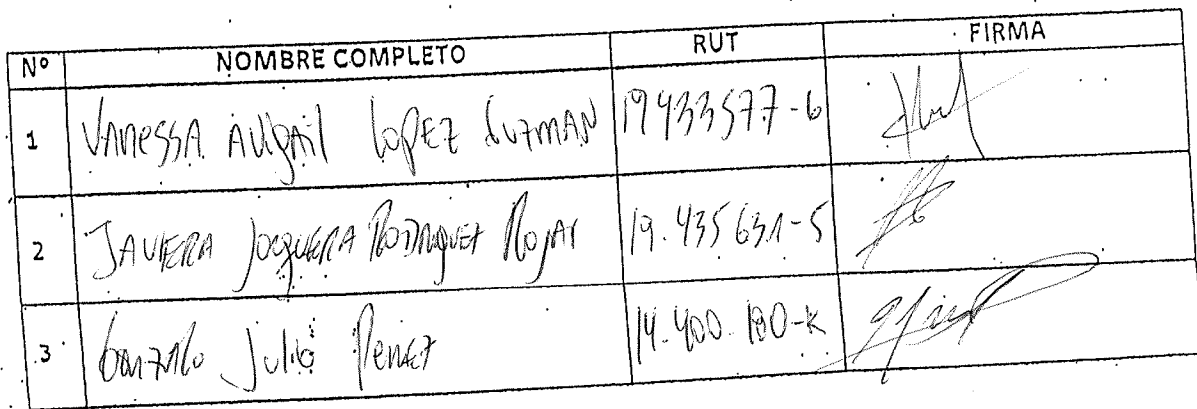 Nº NOMBRE COMPLETO RUT FIRMA
1 VANESSA AVIGAIL LOPEZ GUZMAN 19433577-6
2 JAVIERA JORQUERA RODRIGUEZ ROJAS 19.435631-5
3 Gonzalo Julio Perez 14.400.180-K